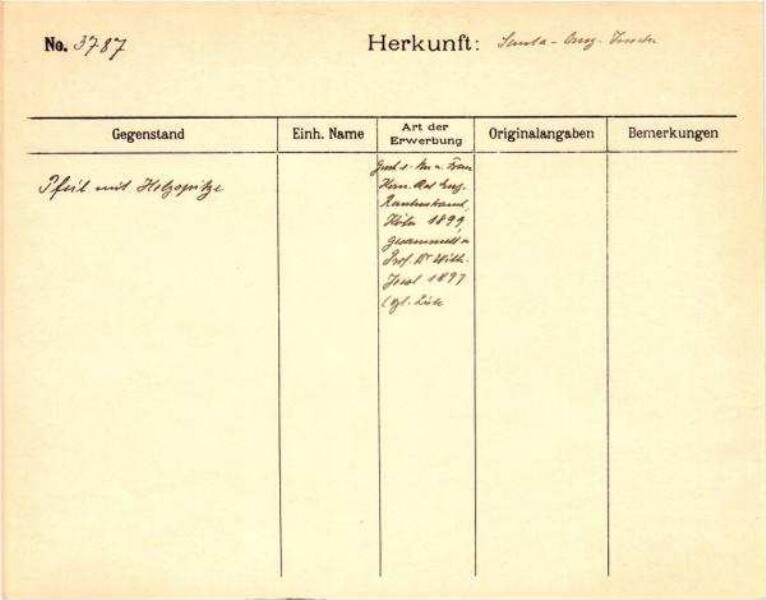 No. 3787
Herkunft: Santa-Cruz-Inseln
Gegenstand
Einh. Name
Art der
Erwerbung
Originalangaben
Bemerkungen
Pfeil mit Holzspitze
Frau
Rautenstrauch,
Köln 1899
gesammelt v.
Prof. Dr Wilh.
Joest 1897
(vgl. Liste